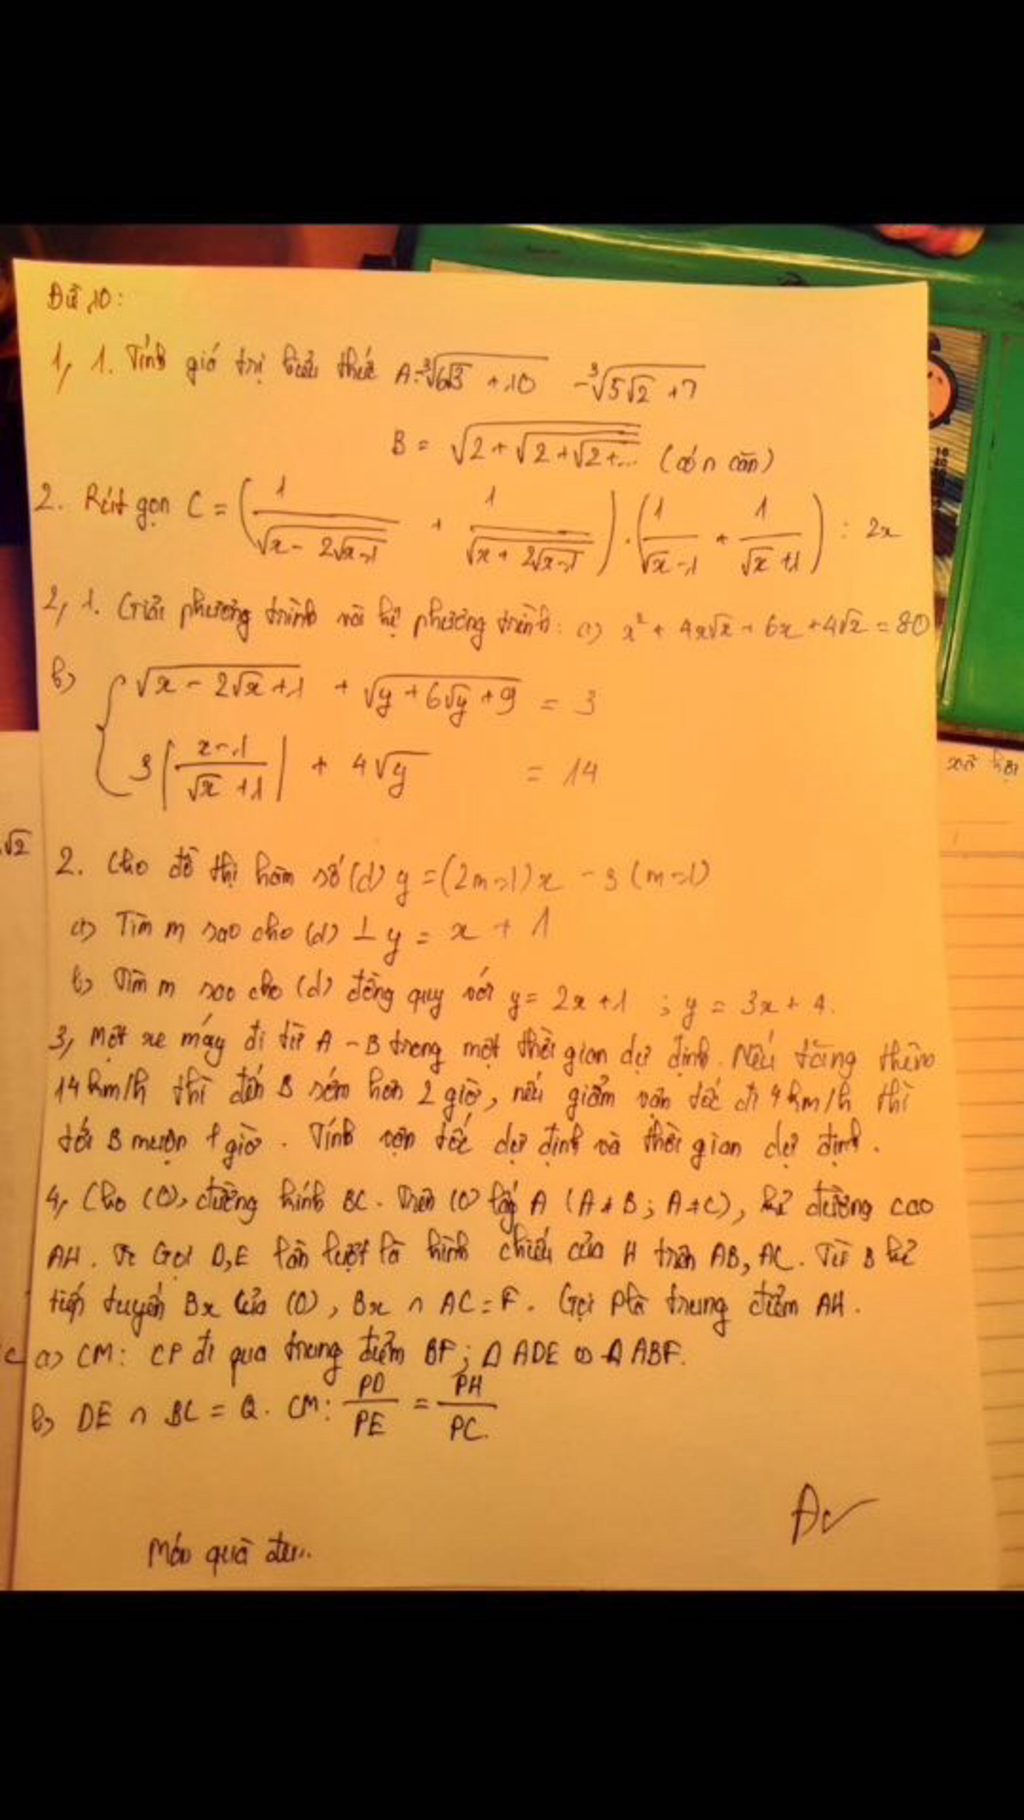 Bài 10:
1, 1. Tính giá trị biểu thức A = ∛(6√3 + 10) - ∛(5√2 + 7)
B = √(2 + √(2 + √(2 + ... (có n căn)
2. Rút gọn C = (1/√(x - 2√(x-1)) + 1/√(x + 2√(x-1))) . (1/(√x - 1) + 1/(√x + 1)) : 2x
2, 1. Giải phương trình và hệ phương trình: a) x² + 4x√x + 6x + 4√x = 80
b) { √(x - 2√x + 1) + √(y + 6√y + 9) = 3
3|(x-1)/(√x + 1)| + 4√y = 14
√2
2. Cho đồ thị hàm số (d) y = (2m-1)x - 3(m-1)
a) Tìm m sao cho (d) ⊥ y = x + 1
b) Tìm m sao cho (d) đồng quy với y = 2x + 1 ; y = 3x + 4.
3, Một xe máy đi từ A - B trong một thời gian dự định. Nếu tăng thêm
14 km/h thì đến B sớm hơn 2 giờ, nếu giảm vận tốc đi 4 km/h thì
tới B muộn 1 giờ. Tính vận tốc dự định và thời gian dự định.
4, Cho (O), đường kính BC. Trên (O) lấy A (A ≠ B; A ≠ C), kẻ đường cao
AH. Gọi D, E lần lượt là hình chiếu của H trên AB, AC. Từ B kẻ
tiếp tuyến Bx của (O), Bx ∩ AC = F. Gọi P là trung điểm AH.
a) CM: CP đi qua trung điểm BF; Δ ADE ∽ Δ ABF.
b) DE ∩ BC = Q. CM: PD/PE = PH/PC.
Món quà